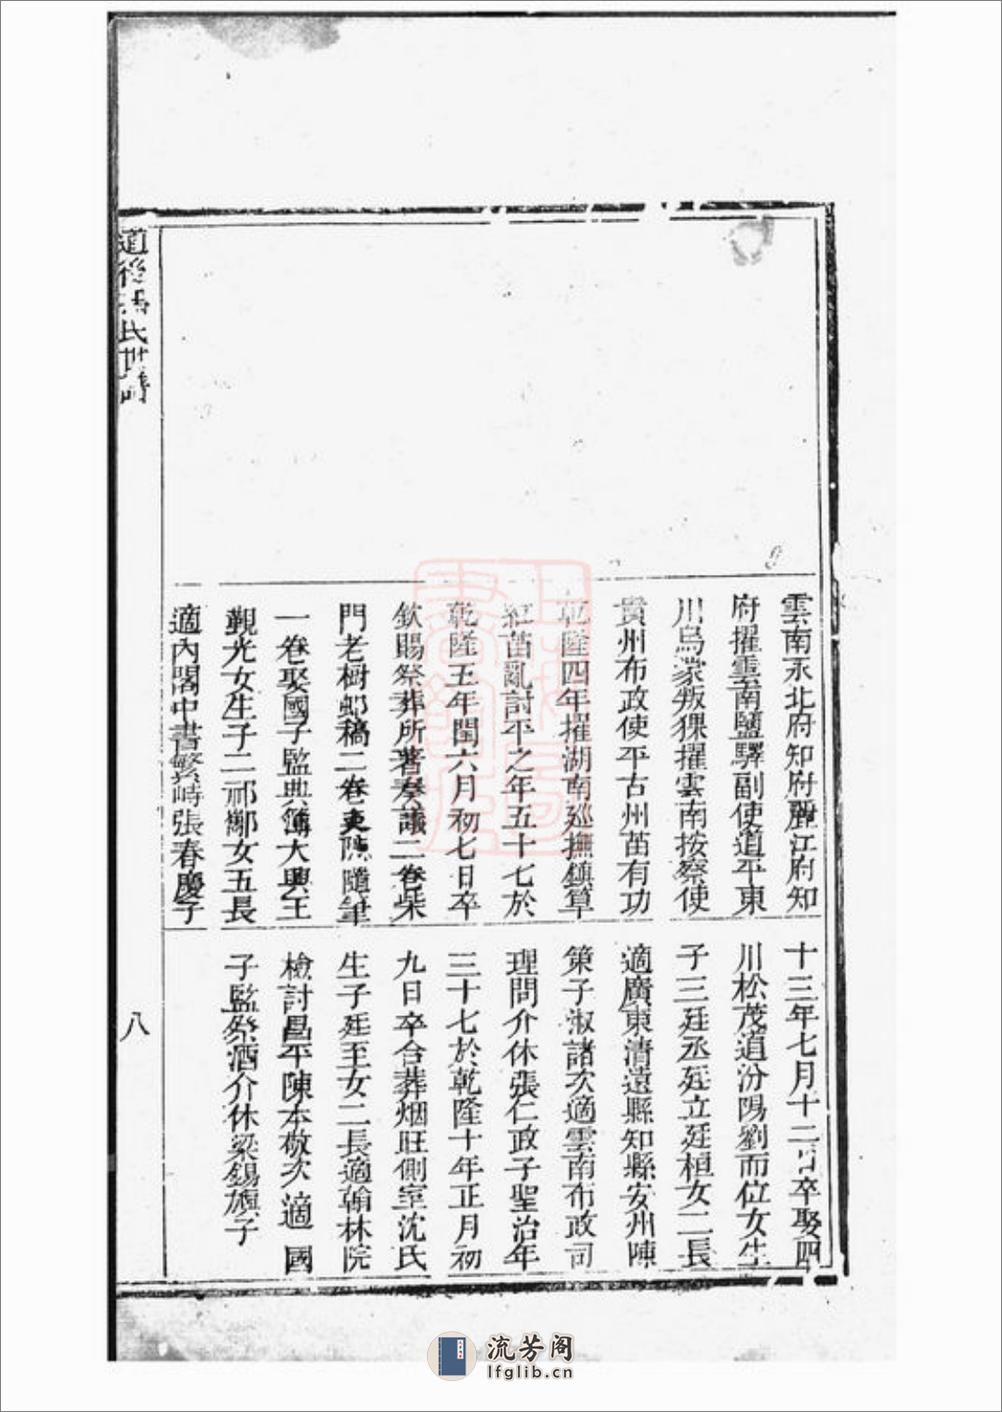 雲南永北府知府麗江府知
府擢雲南鹽驛副使道平東
川烏蒙叛猓擢雲南按察使
貴州布政使平古州苗有功
乾隆四年擢湖南廵撫鎮筸
紅苗亂討平之年五十七於
乾隆五年閏六月初七日卒
欽賜祭葬所著奏議二卷柴
門老樹邨稿二卷 隨筆
一卷娶國子監典簿大興王
觐光女生子二祁 女五長
適內閣中書繁峙張春慶子
十三年七月十二日卒娶四
川松茂道汾陽劉而位女生
子三廷丞廷立廷桓女二長
適廣東清遠縣知縣安州陳
策子淑諸次適雲南布政司
理問介休張仁政子聖治年
三十七於乾隆十年正月初
九日卒合葬烟旺側室沈氏
生子廷至女二長適翰林院
檢討昌平陳本敬次適國
子監祭酒介休梁錫旟子
道 氏世
八
流芳阁
lfglib.cn